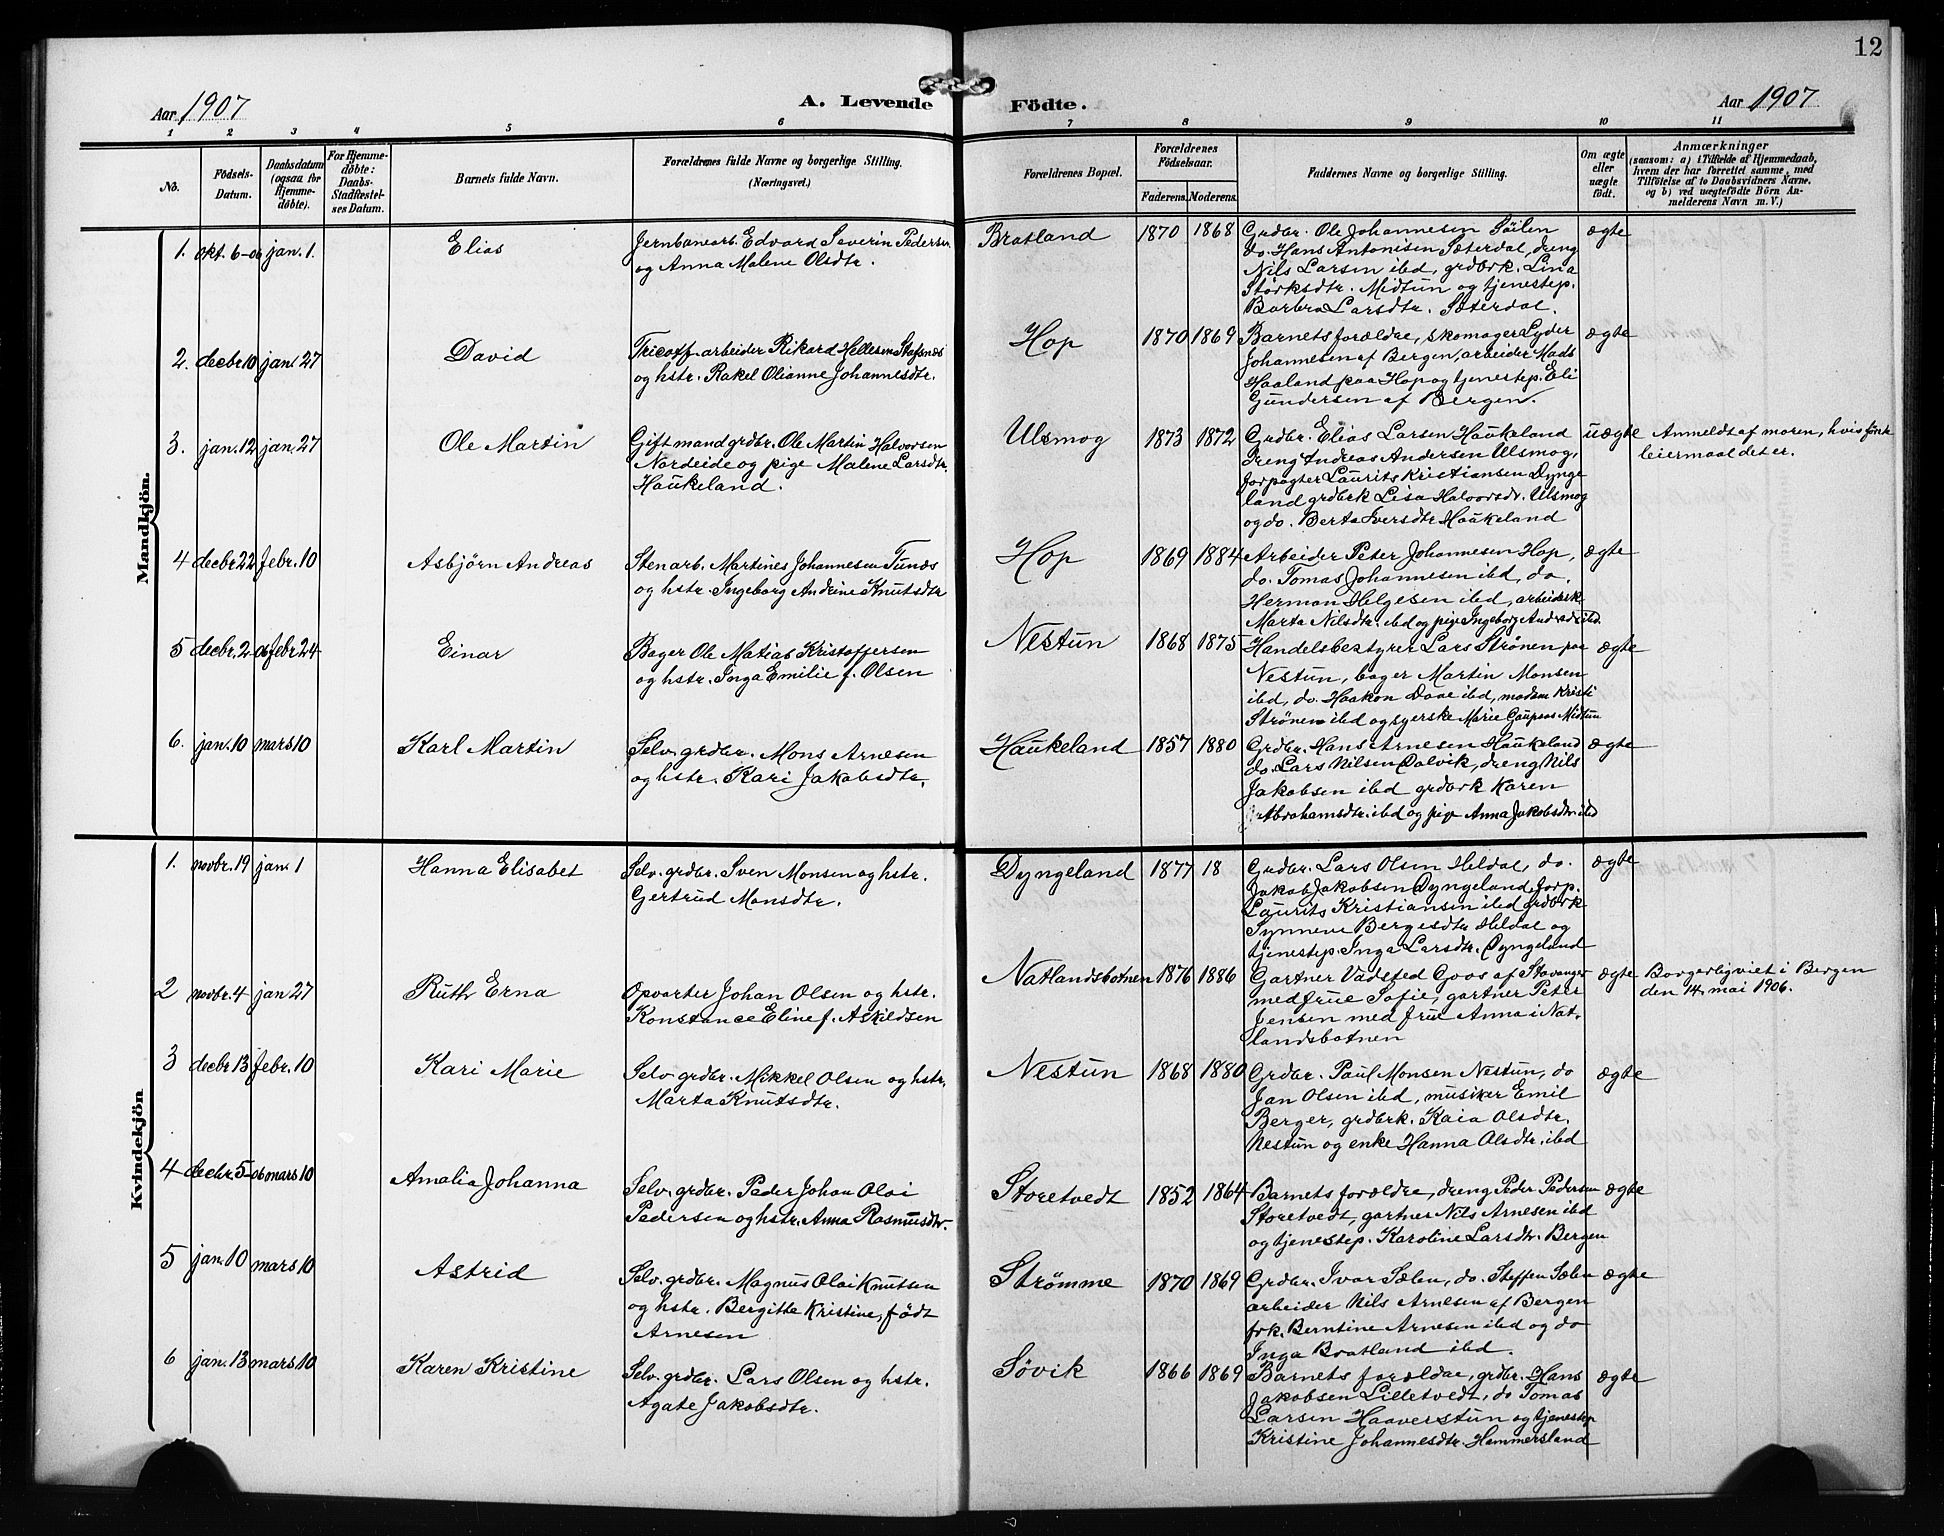 12
Aar 1907
A. Levende Födte.
Aar 1907
1 2 3 4 5 6 7 8 9 10 11
No.
Födsels-
Datum.
Daabsdatum
(ogsaa for
Hjemme-
döbte).
For Hjemme-
döbte:
Daabs-
Stadfæstel-
ses Datum.
Barnets fulde Navn.
Forældrenes fulde Navne og borgerlige Stilling.
(Næringsvei.)
Forældrenes Bopæl.
Forældrenes
Födselsaar.
Faderens. Moderens.
Faddernes Navne og borgerlige Stilling.
Om ægte
eller
uægte
födt.
Anmærkninger
(saasom: a) i Tilfælde af Hjemmedaab,
hvem der har forrettet samme, med
Tilföielse af to Daabsvidners Navne,
og b) ved uægtefödte Börn An-
melderens Navn m. V.)
Mandkjön.
1. okt. 6-06 jan. 1.
Elias
Jernbanearb. Edvard Severin Pedersen
og Anna Malene Olsdtr.
Bratland
1870 1868
Grdbr. Ole Johannesen Söilen
do. Hans Antonisen Sæterdal, dreng
Nils Larsen ibd, grdbrk. Lina
Størksdtr. Midtun og tjenestep.
Barbra Larsdtr. Sæterdal.
ægte
2. decbr. 10 jan. 27
David
Tricotf. arbeider Rikard Hellesen Stafsnes
og hstr. Rakel Olianne Johannesdtr.
Hop
1870 1869
Barnets forældre, skomager Lyder
Johannesen af Bergen, arbeider Mads
Haaland paa Hop og tjenestep. Eli
Gundersen af Bergen.
ægte
3. jan. 12 jan. 27
Ole Martin
Gift mand grdbr. Ole Martin Halvorsen
Nordeide og pige Malene Larsdtr.
Haukeland.
Ulsmog
1873 1872
Grdbr. Elias Larsen Haukeland
dreng Andreas Andersen Ulsmog,
forpagter Laurits Kristiansen Dynge
land grdbrk Lisa Halvorsdr. Ulsmog
og do. Berta Iversdtr Haukeland
uægte
Anmeldt af moren, hvis
leiermaal det er.
4 decbr. 22 febr. 10
Asbjørn Andreas
Stenarb. Martines Johannesen Tunæs
og hstr. Ingeborg Andrine Knutsdtr
Hop
1869 1884
Arbeider Peter Johannesen Hop,
do. Tomas Johannesen ibd, do.
Herman Helgesen ibd, arbeidsk
Marta Nilsdtr. ibd og pige Ingeborg Andrsdr ibd.
ægte
5 decbr. 2-06 febr 24
Einar
Bager Ole Matias Kristoffersen
og hstr. Inga Emilie f. Olsen
Nestun
1868 1875
Handelsbestyrer Lars Strønen paa
Nestun, bager Martin Monsen
ibd, do. Haakon Daae ibd, madam Kristi
Strønen ibd og syerske Marie Gaupens Midtun
ægte
6. jan. 10 mars 10
Karl Martin
Selv. grdbr. Mons Arnesen
og hstr. Kari Jakobsdtr.
Haukeland
1857 1880
Grdbr. Hans Arnesen Haukeland
do. Lars Nilsen Dalvik, dreng Nils
Jakobsen ibd grdbrk Karen
Abrahamsdtr. ibd og pige Anna Jakobsdtr ibd
ægte
Kvindekjön
1. novbr. 19 jan. 1
Hanna Elisabet
Selv. grdbr. Sven Monsen og hstr.
Gertrud Monsdtr.
Dyngeland
1877 18
Grdbr. Lars Olsen Heldal, do.
Jakob Jakobsen Dyngeland, forp.
Laurits Kristiansen ibd grdbrk
Synneve Bergesdtr Heldal og
tjenestep. Inga Larsdtr. Dyngeland
ægte
2 novbr. 4 jan 27
Ruth Erna
Opvarter Johan Olsen og hstr.
Konstance Eline f. Askildsen
Natlandsbotnen
1876 1886
Gartner Goos af Stavanger
med frue Sofie, gartner Peter
Jensen med frue Anna i Nat-
landsbotnen
ægte
Borgerlig viet i Bergen
den 14. mai 1906.
3 decbr 13 febr. 10
Kari Marie
Selv. grdbr. Mikkel Olsen og hstr.
Marta Knutsdtr.
Nestun
1868 1880
Grdbr. Paul Monsen Nestun, do
Jan Olsen ibd, musiker Emil
Berger, grdbrk. Kaia Olsdtr.
Nestun og enke Hanna Olsdtr. ibd
ægte
4 decbr. 5-06 mars 10
Amalia Johanna
Selv. grdbr. Peder Johan Olai
Pedersen og hstr. Anna Rasmusdtr.
Storetvedt
1852 1864
Barnets forældre, dreng Peder Pedersen
Storetvedt, gartner Nils Arnesen ibd
og tjenestep. Karoline Larsdtr. Bergen
ægte
5 jan. 10 mars 10
Astrid
Selv. grdbr. Magnus Olai Knutsen
og hstr. Bergitte Kristine, født
Arnesen
Strømme
1870 1869
Grdbr. Ivar Sælen, do. Steffen Sælen
arbeider Nils Arnesen af Bergen
frk. Berntine Arnesen ibd og do
Inga Bratland ibd.
ægte
6 jan. 13 mars 10
Karen Kristine
Selv. grdbr. Lars Olsen og hstr.
Agate Jakobsdtr.
Søvik
1866 1869
Barnets forældre, grdbr. Hans
Jakobsen Lilletvedt, do Tomas
Larsen Haaverstun og tjenestep
Kristine Johannesdtr. Hammersland
ægte